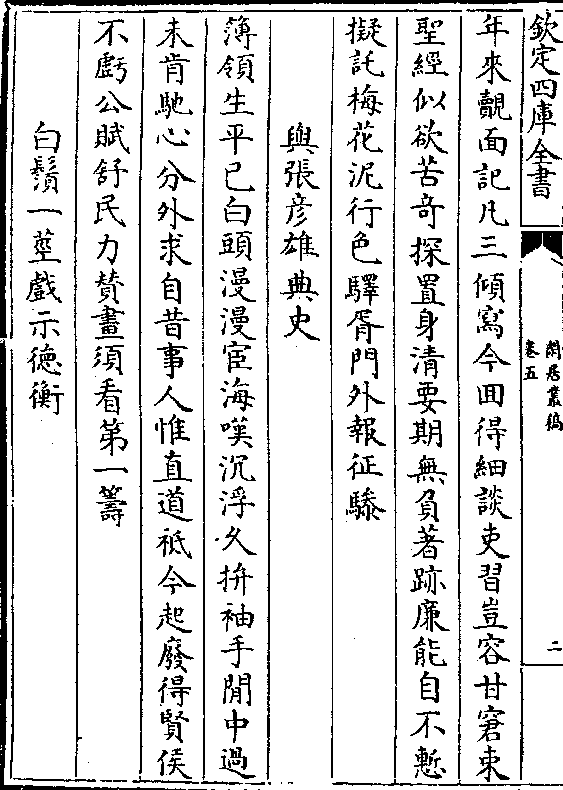 欽定四庫全書
閒居叢稿
卷五
二
年來覿面記凡三傾寫今回得細談吏習豈容甘窘束
聖經似欲苦竒探置身清要期無負著跡廉能自不慙
擬託梅花泥行色驛胥門外報征驂
與張彦雄典史
簿領生平已白頭漫漫宦海嘆沉浮久拚袖手閒中過
未肯馳心分外求自昔事人惟直道祗今起廢得賢侯
不虧公賦舒民力賛畫須看第一籌
白鬚一莖戲示徳衡